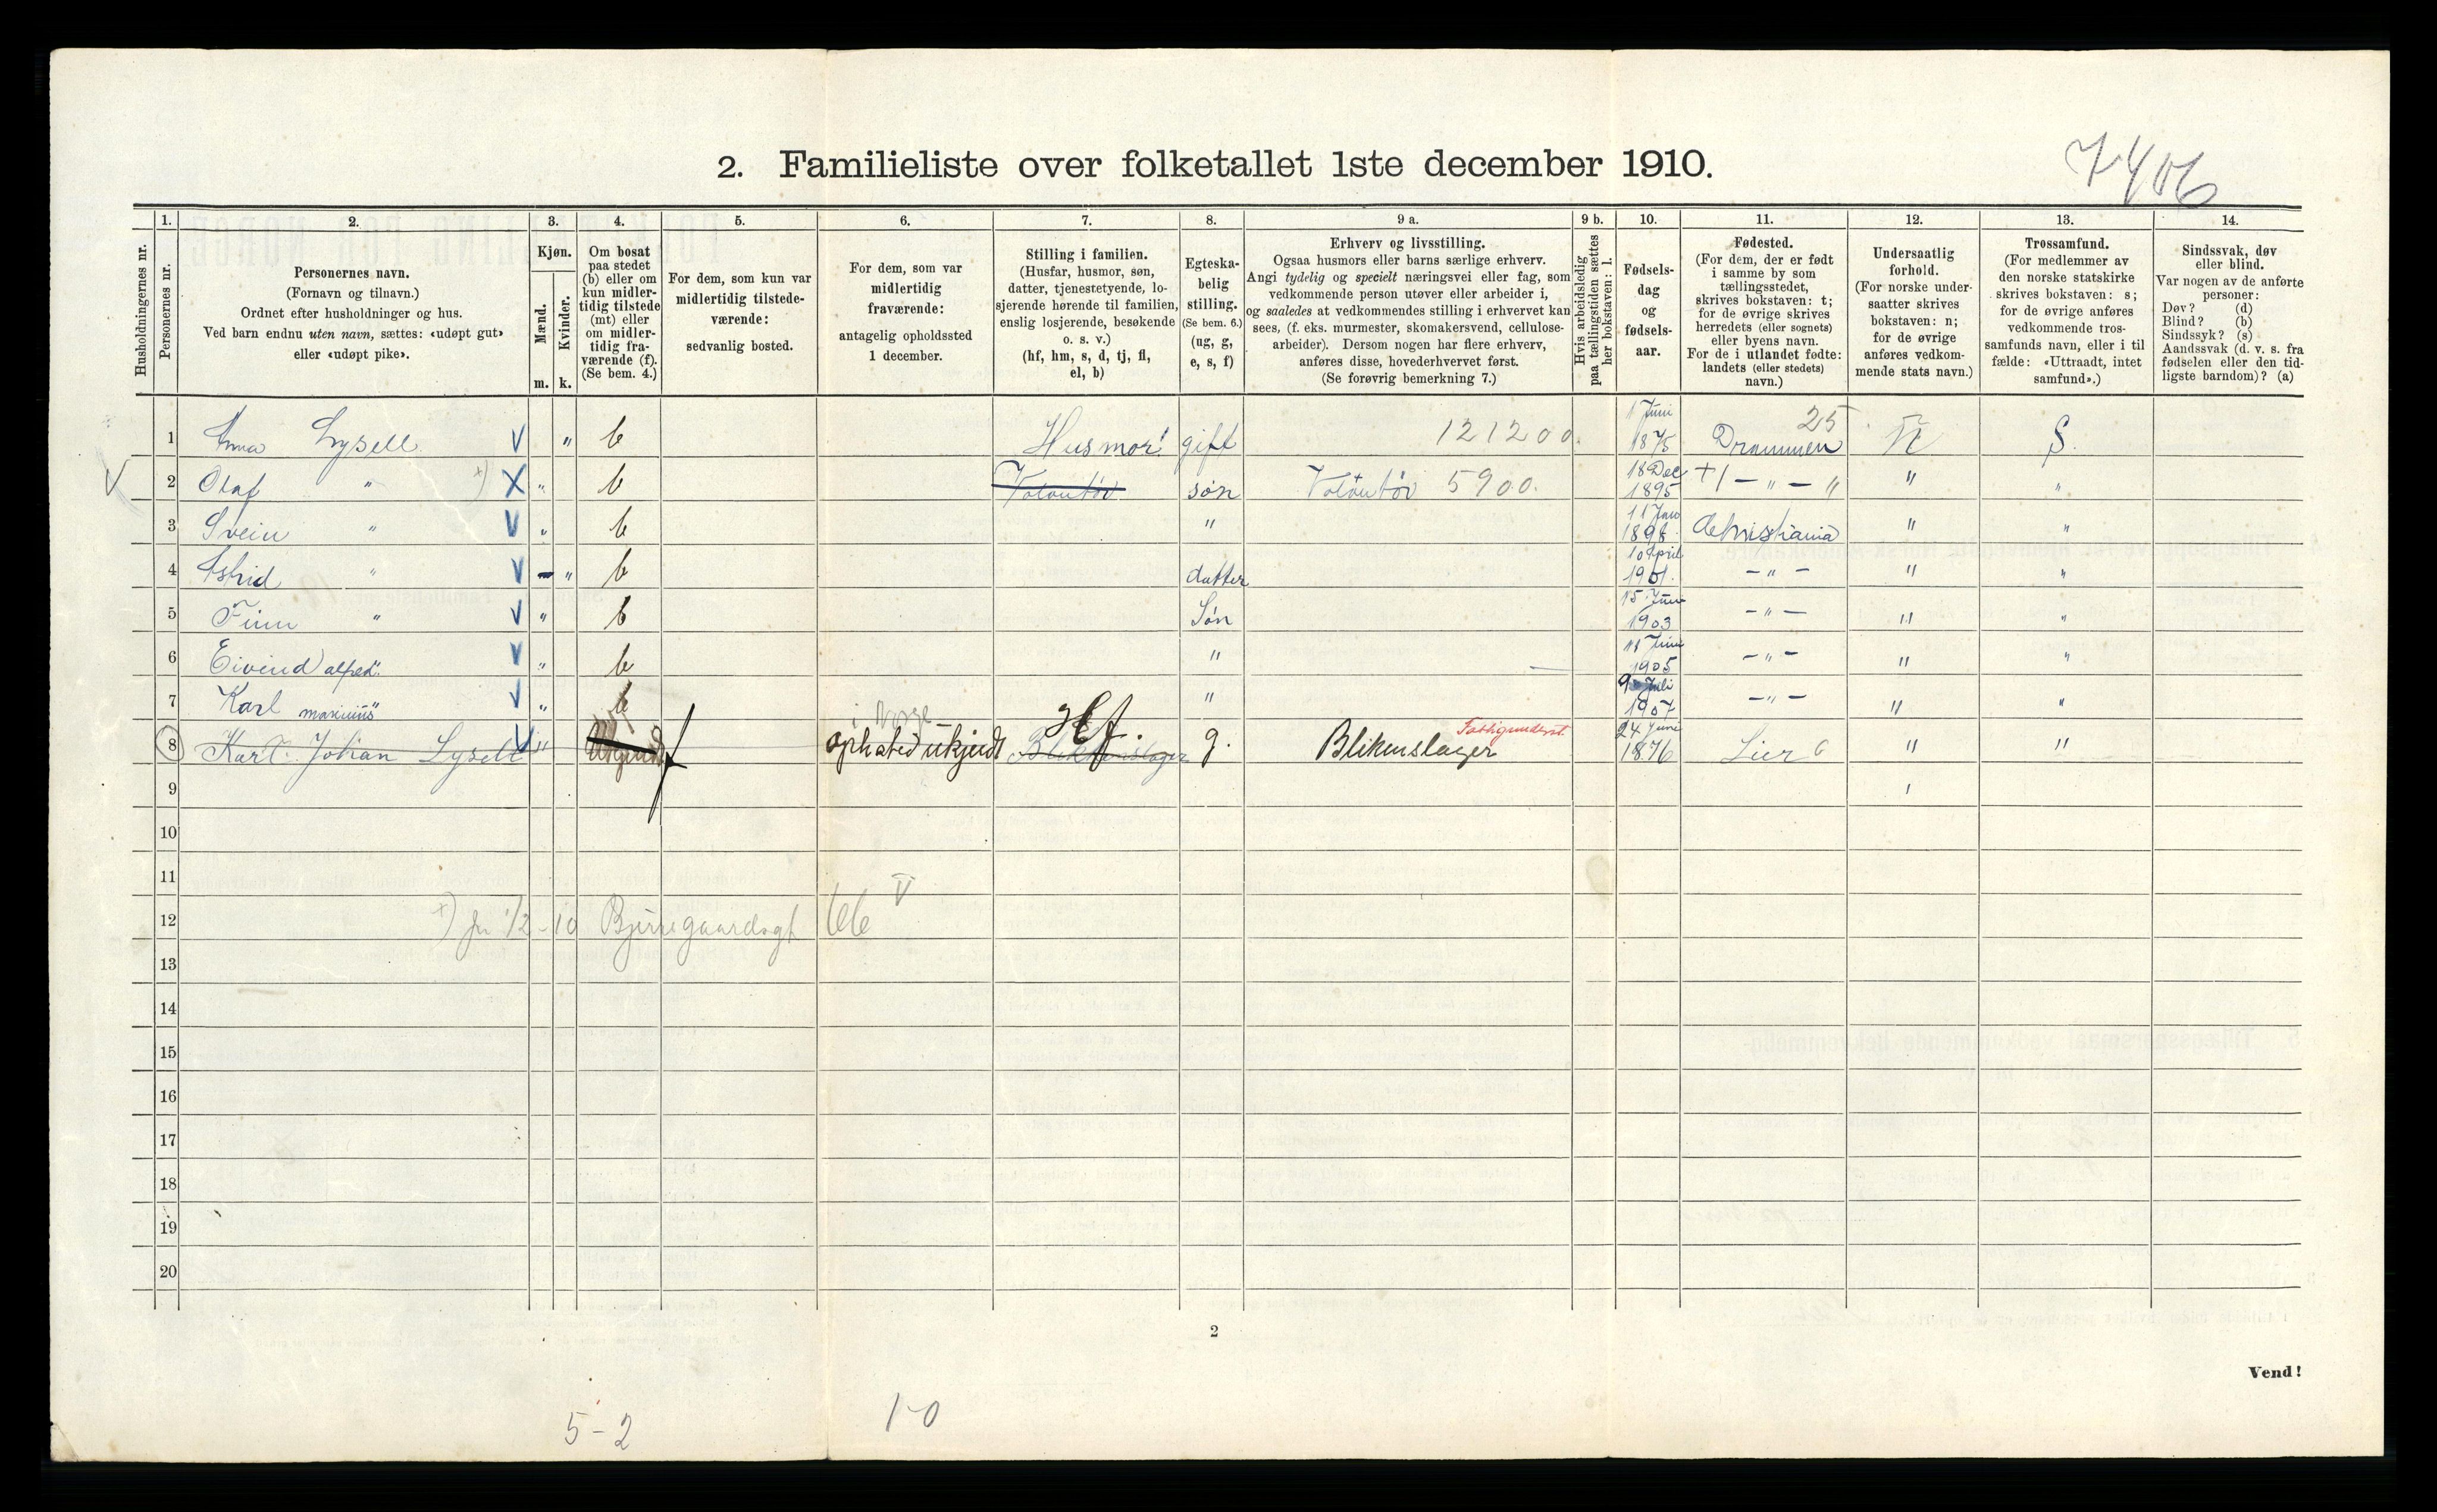 2. Familieliste over folketallet 1ste december 1910.
7406
1. 2. 3. 4. 5. 6. 7. 8. 9 a. 9 b. 10. 11. 12. 13. 14.
Husholdningernes nr.
Personernes nr.
Personernes navn.
(Fornavn og tilnavn.)
Ordnet efter husholdninger og hus.
Ved barn endnu uten navn, sættes: «udøpt gut»
eller «udøpt pike».
Kjøn.
Mænd.
m.
Kvinder.
k.
Om bosat
paa stedet
(b) eller om
kun midler-
tidig tilstede
(mt) eller
om midler-
tidig fra-
værende (f).
(Se bem. 4.)
For dem, som kun var
midlertidig tilstede-
værende:
sedvanlig bosted.
For dem, som var
midlertidig
fraværende:
antagelig opholdssted
1 december.
Stilling i familien.
(Husfar, husmor, søn,
datter, tjenestetyende, lo-
sjerende hørende til familien,
enslig losjerende, besøkende
o. s. v.)
(hf, hm, s, d, tj, fl,
el, b)
Egteska-
belig
stilling.
(Se bem. 6.)
(ug, g,
e, s, f)
Erhverv og livsstilling.
Ogsaa husmors eller barns særlige erhverv.
Angi tydelig og specielt næringsvei eller fag, som
vedkommende person utøver eller arbeider i,
og saaledes at vedkommendes stilling i erhvervet kan
sees, (f. eks. murmester, skomakersvend, cellulose-
arbeider). Dersom nogen har flere erhverv,
anføres disse, hovederhvervet først.
(Se forøvrig bemerkning 7.)
Hvis arbeidsledig
paa tællingstiden sættes
her bokstaven: l.
Fødsels-
dag
og
fødsels-
aar.
Fødested.
(For dem, der er født
i samme by som
tællingsstedet,
skrives bokstaven: t;
for de øvrige skrives
herredets (eller sognets)
eller byens navn.
For de i utlandet fødte:
landets (eller stedets)
navn.)
Undersaatlig
forhold.
(For norske under-
saatter skrives
bokstaven: n;
for de øvrige
anføres vedkom-
mende stats navn.)
Trossamfund.
(For medlemmer av
den norske statskirke
skrives bokstaven: s;
for de øvrige anføres
vedkommende tros-
samfunds navn, eller i til
fælde: «Uttraadt, intet
samfund».)
Sindssvak, døv
eller blind.
Var nogen av de anførte
personer:
Døv? (d)
Blind? (b)
Sindssyk? (s)
Aandssvak (d. v. s. fra
fødselen eller den tid-
ligste barndom)? (a)
1 Anna Lysell V " b Husmor gift 121200. 1 Juni 1875 Drammen 25 n S.
V 2 Olaf " x) X " b Volontør søn Volontør 5900. 18 Dec 1895 +1 — " — " " "
3 Svein " V " b " 11 Jan 1898 Christiania " "
4 Astrid " V " b datter 10 April 1901. — " — " "
5 Finn " V " b Søn 15 Juni 1903 — " — " "
6 Eivind alfred " V " b " 11 Juni 1905 — " — " "
7 Karl marinius " V " b " 9 Juli 1907 — " — " "
8 Karl Johan Lysell V " f i Norge opholsted ukjendt Blikkenslager Hf. g. Blikenslager 24 Juni 1876 Lier " "
9
10
11
12 x) 1/2-10 Bjerregaardsgt 66 V
13
14
15
16
17
18
19
20
2
Vend!
5-2 1-0